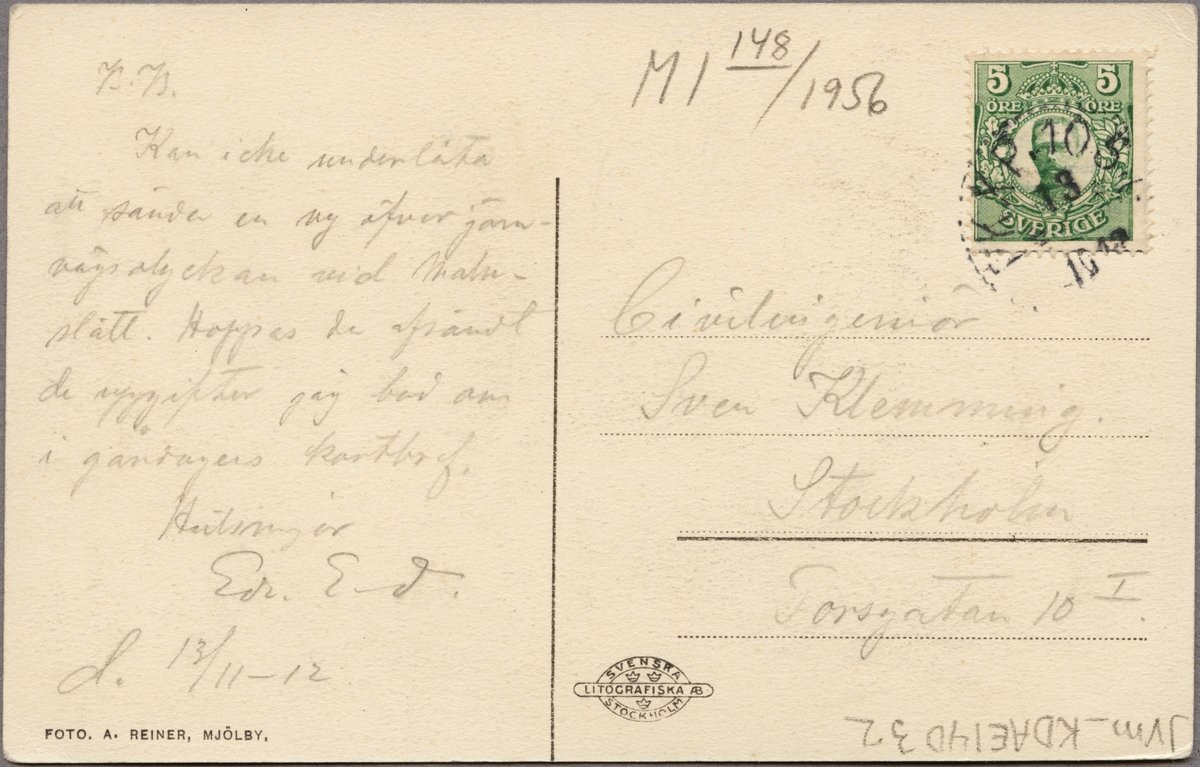 B.B.
Kan icke underlåta
att sända en ny öfver järn-
vägsolyckan vid Malm-
slätt. Hoppas du afsändt
de uppgifter jag bad om
i gårdagens kortbref.
Hälsningar
Edr. E-d.
d. 13/11-12
FOTO. A. REINER, MJÖLBY,
M1 148/1956
5 5
ÖRE ÖRE
SVERIGE
10
13
Civilingeniör
Sven Klemming.
Stockholm
Torsgatan 10 I.
SVENSKA
LITOGRAFISKA AB
STOCKHOLM
Jvm_KDAE14032